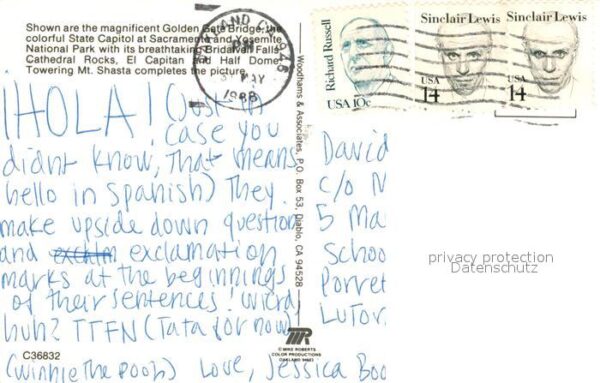 Shown are the magnificent Golden Gate Bridge, the
colorful State Capitol at Sacramento and Yosemite
National Park with its breathtaking Bridalvan Falls
Cathedral Rocks, El Capitan and Half Dome
Towering Mt. Shasta completes the picture.
MAY
1988
Richard Russell
USA 10c
Sinclair Lewis
USA
14
Sinclair Lewis
USA
14
¡HOLA! (Just in
case you
didnt know, that means
hello in Spanish) They
make upside down question
and exclam exclamation
marks at the beginnings
of their sentences! Wierd
huh? TTFN (Tata for now)
(Winnie the pooh) Love, Jessica Boo
Woodhams & Associates, P.O. Box 53, Diablo, CA 94528
David
c/o
5 Ma
Schoo
Porret
LuTor
privacy protection
Datenschutz
C36832
© MIKE ROBERTS
COLOR PRODUCTIONS